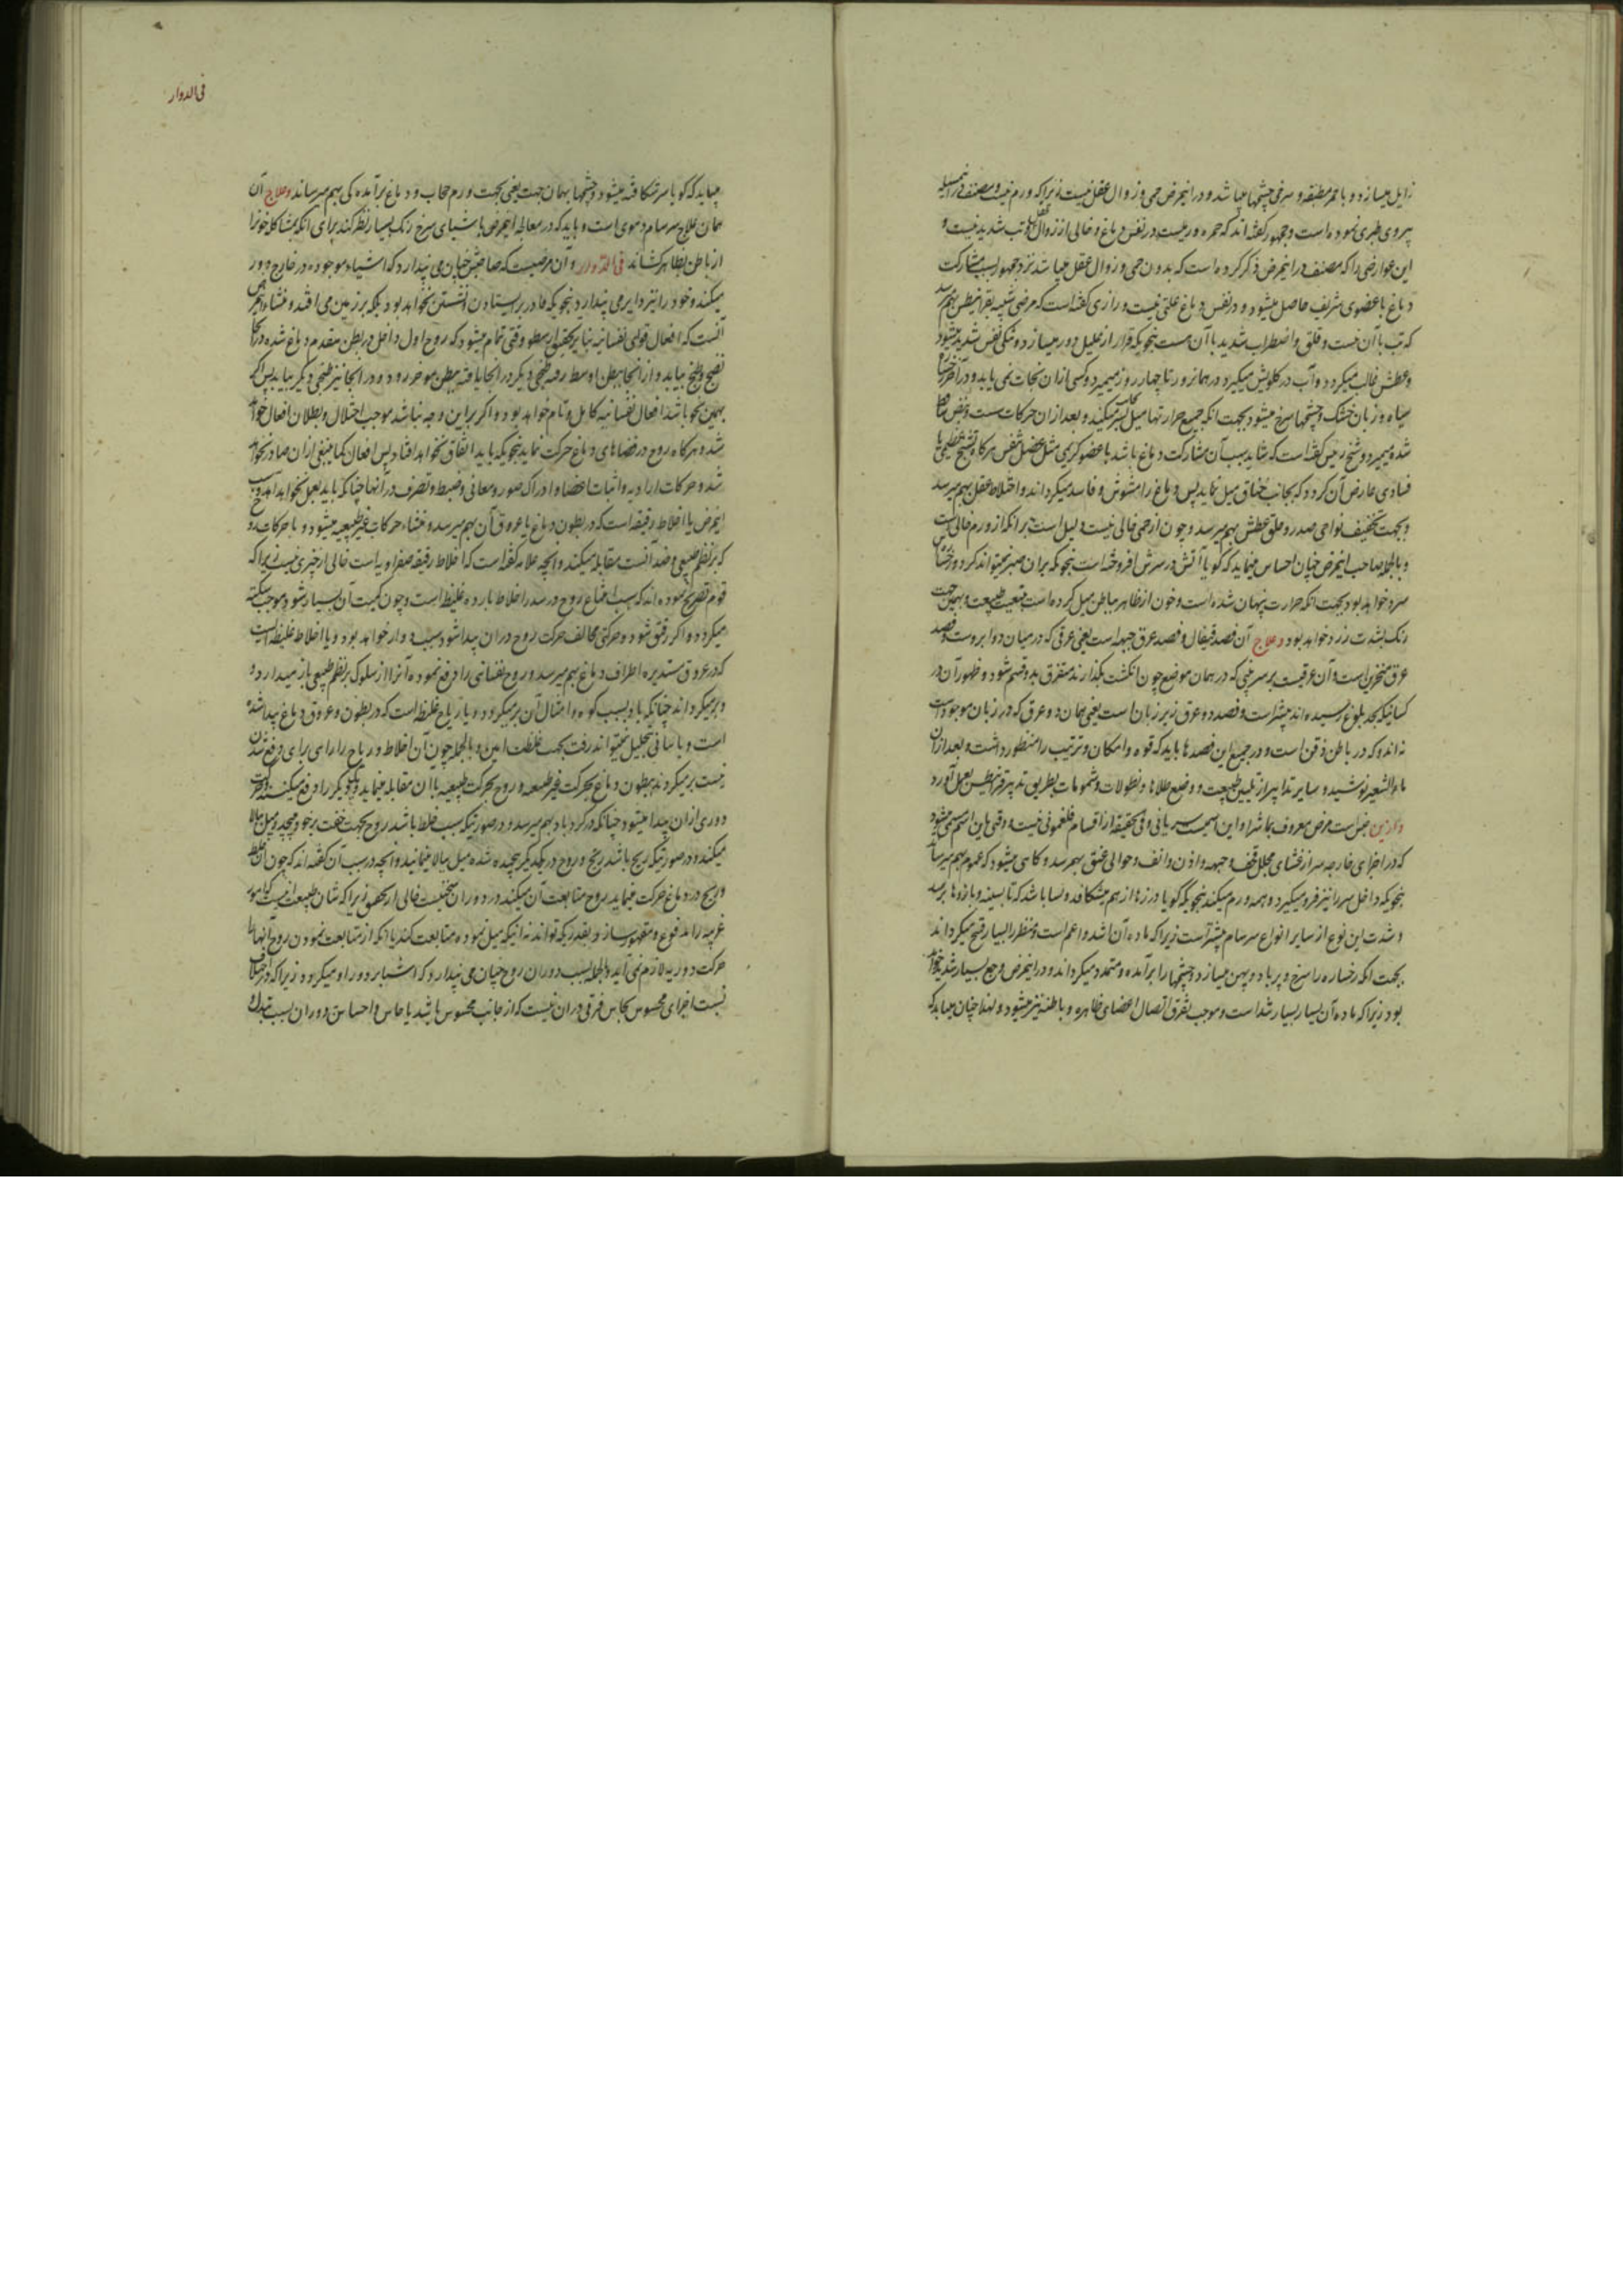 زایل میسازد و باحمر مطبقه و سرخی چشمها میباشد و در اینمرض حمی و زوال عقل نیست زیراکه ورم نیست و مصنف در این مسئله
پیروی طبری نموده است و جمهور گفته‌اند که حمره ورمیست در نفس دماغ و خالی از زوال عقل و تب شدید نیست و
این عوارضی را که مصنف در اینمرض ذکر کرده است که بدون حمی و زوال عقل میباشد نزد جمهور بسبب مشارکت
دماغ با عضوی شریف حاصل میشود و در نفس دماغ علتی نیست و رازی گفته است که مرضی شبیه بقرانیطس بهم میرسد
که تب با آن نیست و قلق و اضطراب شدید با آن هست بنحویکه قرار از علیل دور میسازد و تنگی نفس شدید میشود
و عطش غالب میگردد و آب در گلویش میگیرد در همانروز تا چهار روز میمیرد و کسی از ان نجات نمی یابد و در آخر
سیاه و زبان خشک و چشمها سرخ میشود بجهت انکه جمیع حرارتها میل بسر میکند و بعد از ان حرکات سست و نبض ساقط
شده میمیرد و شیخ رئیس گفته است که شاید سبب آن مشارکت دماغ باشد با عضو کریمی مثل عضل نفس هرگاه تشنج عظیمی یا
فسادی عارض آن گردد که بجانب خناق میل نماید پس دماغ را مشوش و فاسد میگرداند و اختلاط عقل بهم میرسد
و بجهت تجفیف نواحی صدر و حلق عطش بهم میرسد و چون از حمی خالی نیست دلیل است بر انکه از ورم خالی است
و بالجمله صاحب اینمرض چنان احساس مینماید که گویا آتش در سرش افروخته است بنحویکه بران صبر نمیتواند کرد و
سرد خواهد بود بجهت انکه حرارت پنهان شده است و خون از ظاهر بباطن میل کرده است بتبعیت طبیعت و بهمین جهت
رنگ بشرت زرد خواهد بود و علاج آن فصد قیفال و فصد عرق جبهه است یعنی عرقی که در میان دو ابروست و فصد
عرق منخرین است و آن عرقیست بر سر بینی که در همان موضع چون انگشت بگذارند متفرق بدو قسم شود و ظهور آن در
کسانیکه بحد بلوغ رسیده‌اند بیشتر است و فصد دو عرق زیر زبان است یعنی همان دو عرق که در زیر زبان موجود است
نه اندو که در باطن ذقن است و در جمیع این فصدها باید که قوه و امکان و ترتیب را منظور داشت و بعد از ان
ماءالشعیر نوشیده و سایر تدابیر از تلیین طبیعت و وضع طلاها و نطولات و شمومات بطریق تدبیر قرانیطس بعمل آورد
همان است مرض معروف بماشرا و این اسمیست سریانی و فی الحقیقه از اقسام فلغمونی نیست و قتی باین اسم مسمی میشود
که در اجزای خارجه سر از غشای مجلل قحف و جبهه و اذن و انف و حوالی عنق بهمرسد و گاهی میشود که عموم بهم میرساند
بنحویکه داخل سر را نیز فرو میگیرد و همه ورم میکند بنحویکه گویا درزها از هم میشکافد و بسا باشد که تا بسینه و بازوها برسد
و شدت این نوع از سایر انواع سرسام بیشتر است زیرا که ماده آن اشد و اعم است و منظر را بسیار قبیح میگرداند
بجهت انکه رخساره را سرخ و پر باد و پهن میسازد و چشمها را برآمده و متمدد میگرداند و در اینمرض وجع بسیار شدید خواهد
بود زیرا که ماده آن بسیار بسیار شد است و موجب تفرق اتصال اعضای ظاهره و باطنه نیز میشود و لهذا چنان میابد که
فی الدوار
میابد که گویا سر شکافته میشود و چشمها بهمان جهت یعنی بجهت ورم حجاب و دماغ برآمده گی بهم میرساند و علاج آن
همان علاج سرسام دموی است و باید که در معالجه اینمرض باشیای سرخ رنگ بسیار نظر کند برای انکه بمشاکله خونرا
از باطن بظاهر کشاند فی الدوار و آن مرضیست که صاحبش چنان می پندارد که اشیاء موجوده در خارج دور
میکند و خود را نیز دایر می پندارد بنحویکه قادر بر ایستادن و نشستن نخواهد بود بلکه بر زمین می افتد و منشاء اینمرض
آنست که افعال قوای نفسانیه بنابر تحقیق ارسطو وقتی تمام میشود که روح اول داخل در بطن مقدم دماغ شده در آنجا
نضج و طبخ بیابد و از آنجا ببطن اوسط رفته طبخی دیگر در انجا یافته ببطن موخر رود و در انجا نیز طبخی دیگر بیابد پس اگر
بهمین نحو باشد افعال نفسانیه کامل و تام خواهد بود و اگر براین وجه نباشد موجب اختلال و بطلان افعال خواهد
شد و هرگاه روح در فضاهای دماغ حرکت نماید بنحویکه باید اتفاق نخواهد افتاد پس افعال کماینبغی از ان صادر نخواهد
شد و حرکات ارادیه و اثبات اعضا و ادراک صور و معانی و ضبط و تصرف در آنها چنانکه باید بعمل نخواهد آمد و سبب
اینمرض یا اخلاط رقیقه است که در بطون دماغ یا عروق آن بهم میرسد و منشاء حرکات غیر طبیعیه میشود و با حرکات روح
که بر نظم طبیعی و ضد آنست مقابله میکند و انچه علامه گفته است که اخلاط رقیقه صفراویه است خالی از چیزی نیست زیراکه
قوم تصریح نموده‌اند که سبب امتناع روح در سدر اخلاط بارده غلیظ است و چون کمیت آن بسیار شود موجب سکته
میگردد و اگر رقیق شود و حرکتی مخالف حرکت روح در ان پیدا شود سبب دوار خواهد بود و یا اخلاط غلیظه است
که در عروق مستدیره اطراف دماغ بهم میرسد و روح نفسانی را دفع نموده آنرا از سلوک بر نظم طبیعی باز میدارد و
و برمیگرداند چنانکه باد بسبب کوه و امثال آن برمیگردد و یا ریاح غلیظه است که در بطون و عروق دماغ پیدا شده
است و باسانی تحلیل نمیتواند رفت بجهت غلظت ایشان و بالجمله چون آن اخلاط و ریاح را رای برای دفع شدن
نیست برمیگردند ببطون دماغ بحرکت غیر طبیعیه و روح بحرکت طبیعیه با ان مقابله مینماید و یکدیگر را دفع میکنند و حرکت
دوری از ان پیدا میشود چنانکه در گردباد بهم میرسد و در صورتیکه سبب خلط باشد روح بجهت خفت برخود میپیچد و میل ببالا
میکند و در صورتیکه ریح باشد ریح و روح در یکدیگر پیچیده شده میل ببالا مینمایند و انچه در سبب آن گفته‌اند که چون خلط
و ریح در دماغ حرکت مینماید روح متابعت آن میکند در دوران سخنیست خالی از تحقیق زیراکه شان طبیعت نیست که امور
غریبه را مدفوع و مقهور سازد بقدریکه تواند نه اینکه میل نموده متابعت کند با انکه از متابعت نمودن روح آنها را
حرکت دوریه لازم نمی آید و بالجمله بسبب دوران روح چنان می پندارد که اشیا بر دور او میگردد زیراکه در اختلاف
نسبت اجزای محسوس بحاس فرقی در ان نیست که از جانب محسوس باشد یا حاس و احساس دوران بسبب تبدل